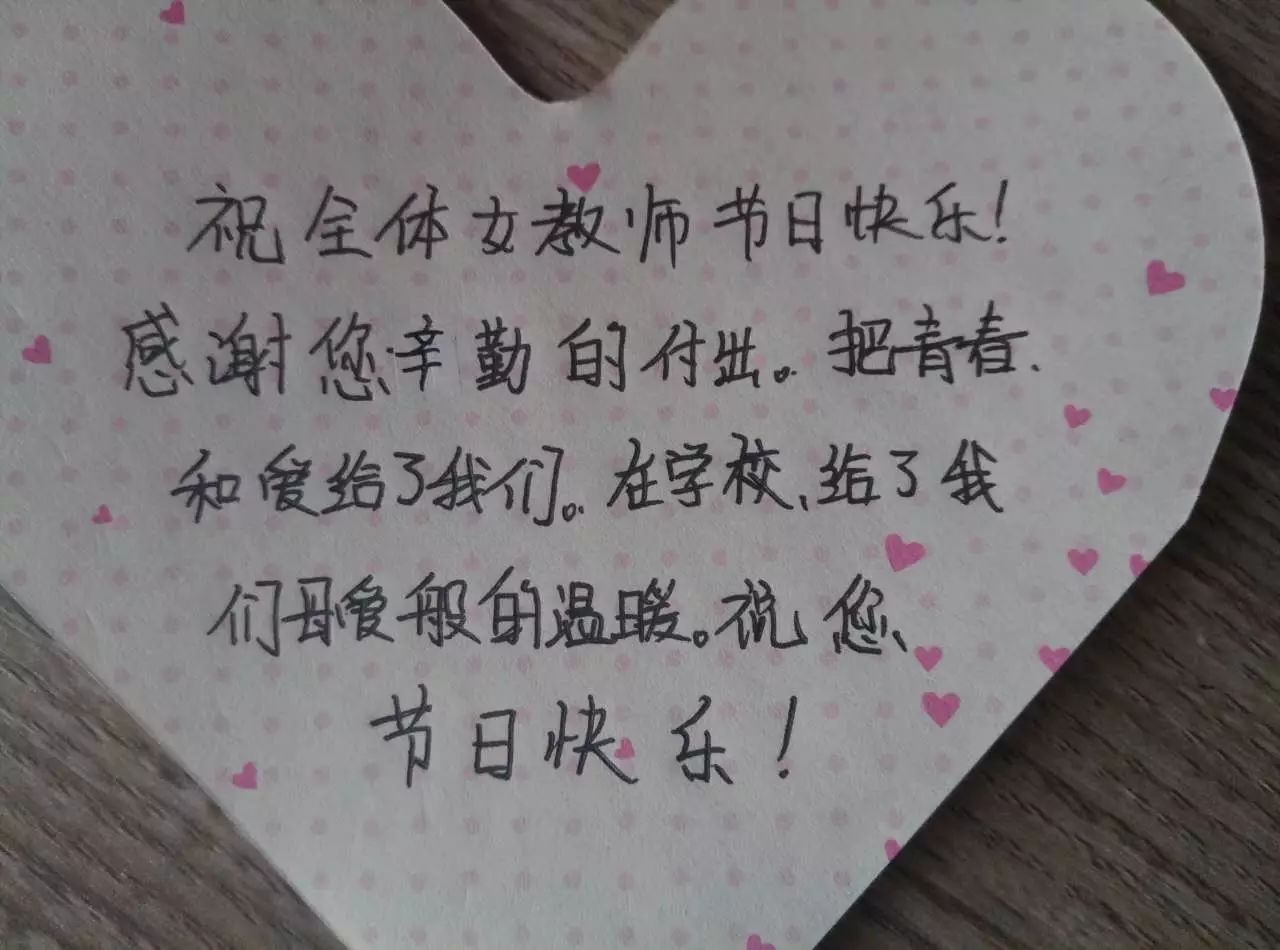 祝全体女教师节日快乐!
感谢您辛勤的付出。把青春
和爱给了我们。在学校,给了我
们母爱般的温暖。祝您
节日快乐!